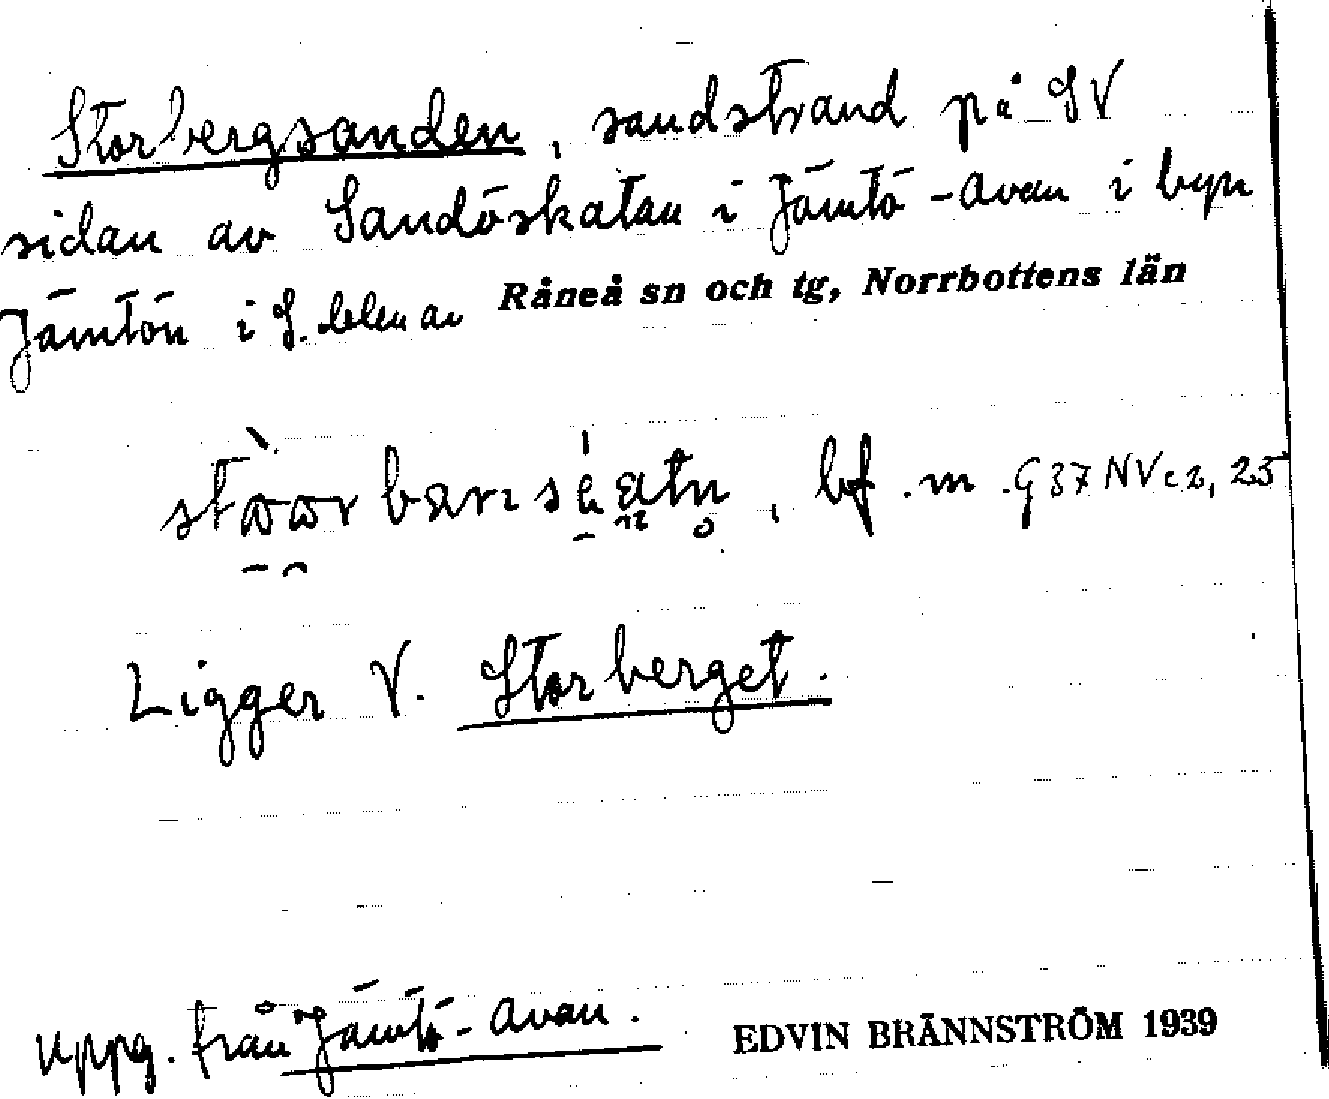 Storbergsanden, sandstrand på SV
sidan av Sandöskatan i Jämtö-Avan i byn
Jämtön i S. delen av Råneå sn och tg, Norrbottens län
bf. m. G 37 NV c 2, 25
Ligger V. Storberget.
Uppg. från Jämtö-Avan. EDVIN BRÄNNSTRÖM 1939